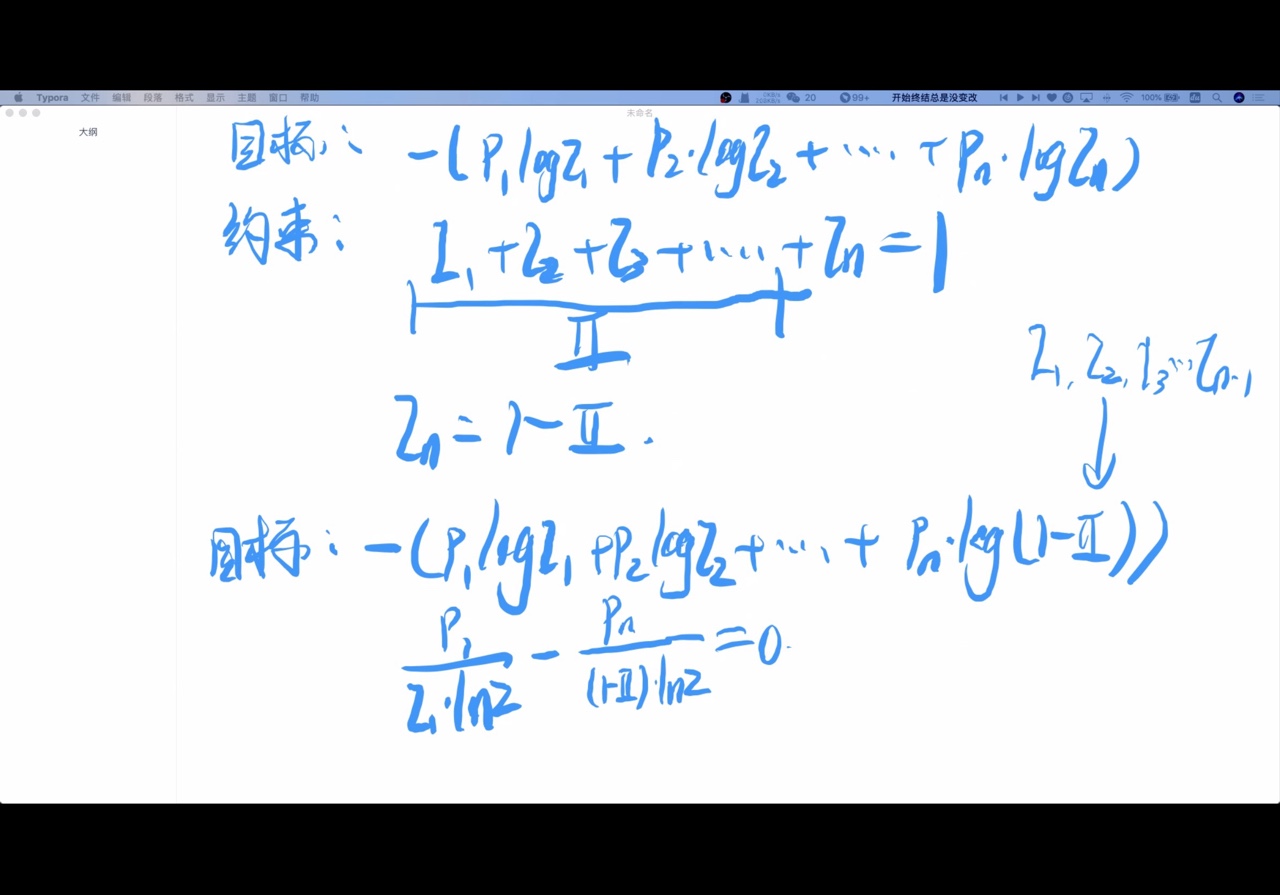 Typora 文件 编辑 段落 格式 显示 主题 窗口 帮助 20 99+ 开始终结总是没变改 100%
未命名
大纲
目标: -(P₁logZ₁+P₂·logZ₂+……+Pₙ·logZₙ)
约束: Z₁+Z₂+Z₃+……+Zₙ=1
Ⅱ
Z₁,Z₂,Z₃…Zₙ₋₁
Zₙ=1-Ⅱ.
目标: -(P₁logZ₁+P₂logZ₂+……+Pₙ·log(1-Ⅱ))
P₁/(Z₁·ln2) - Pₙ/((1-Ⅱ)·ln2) =0.